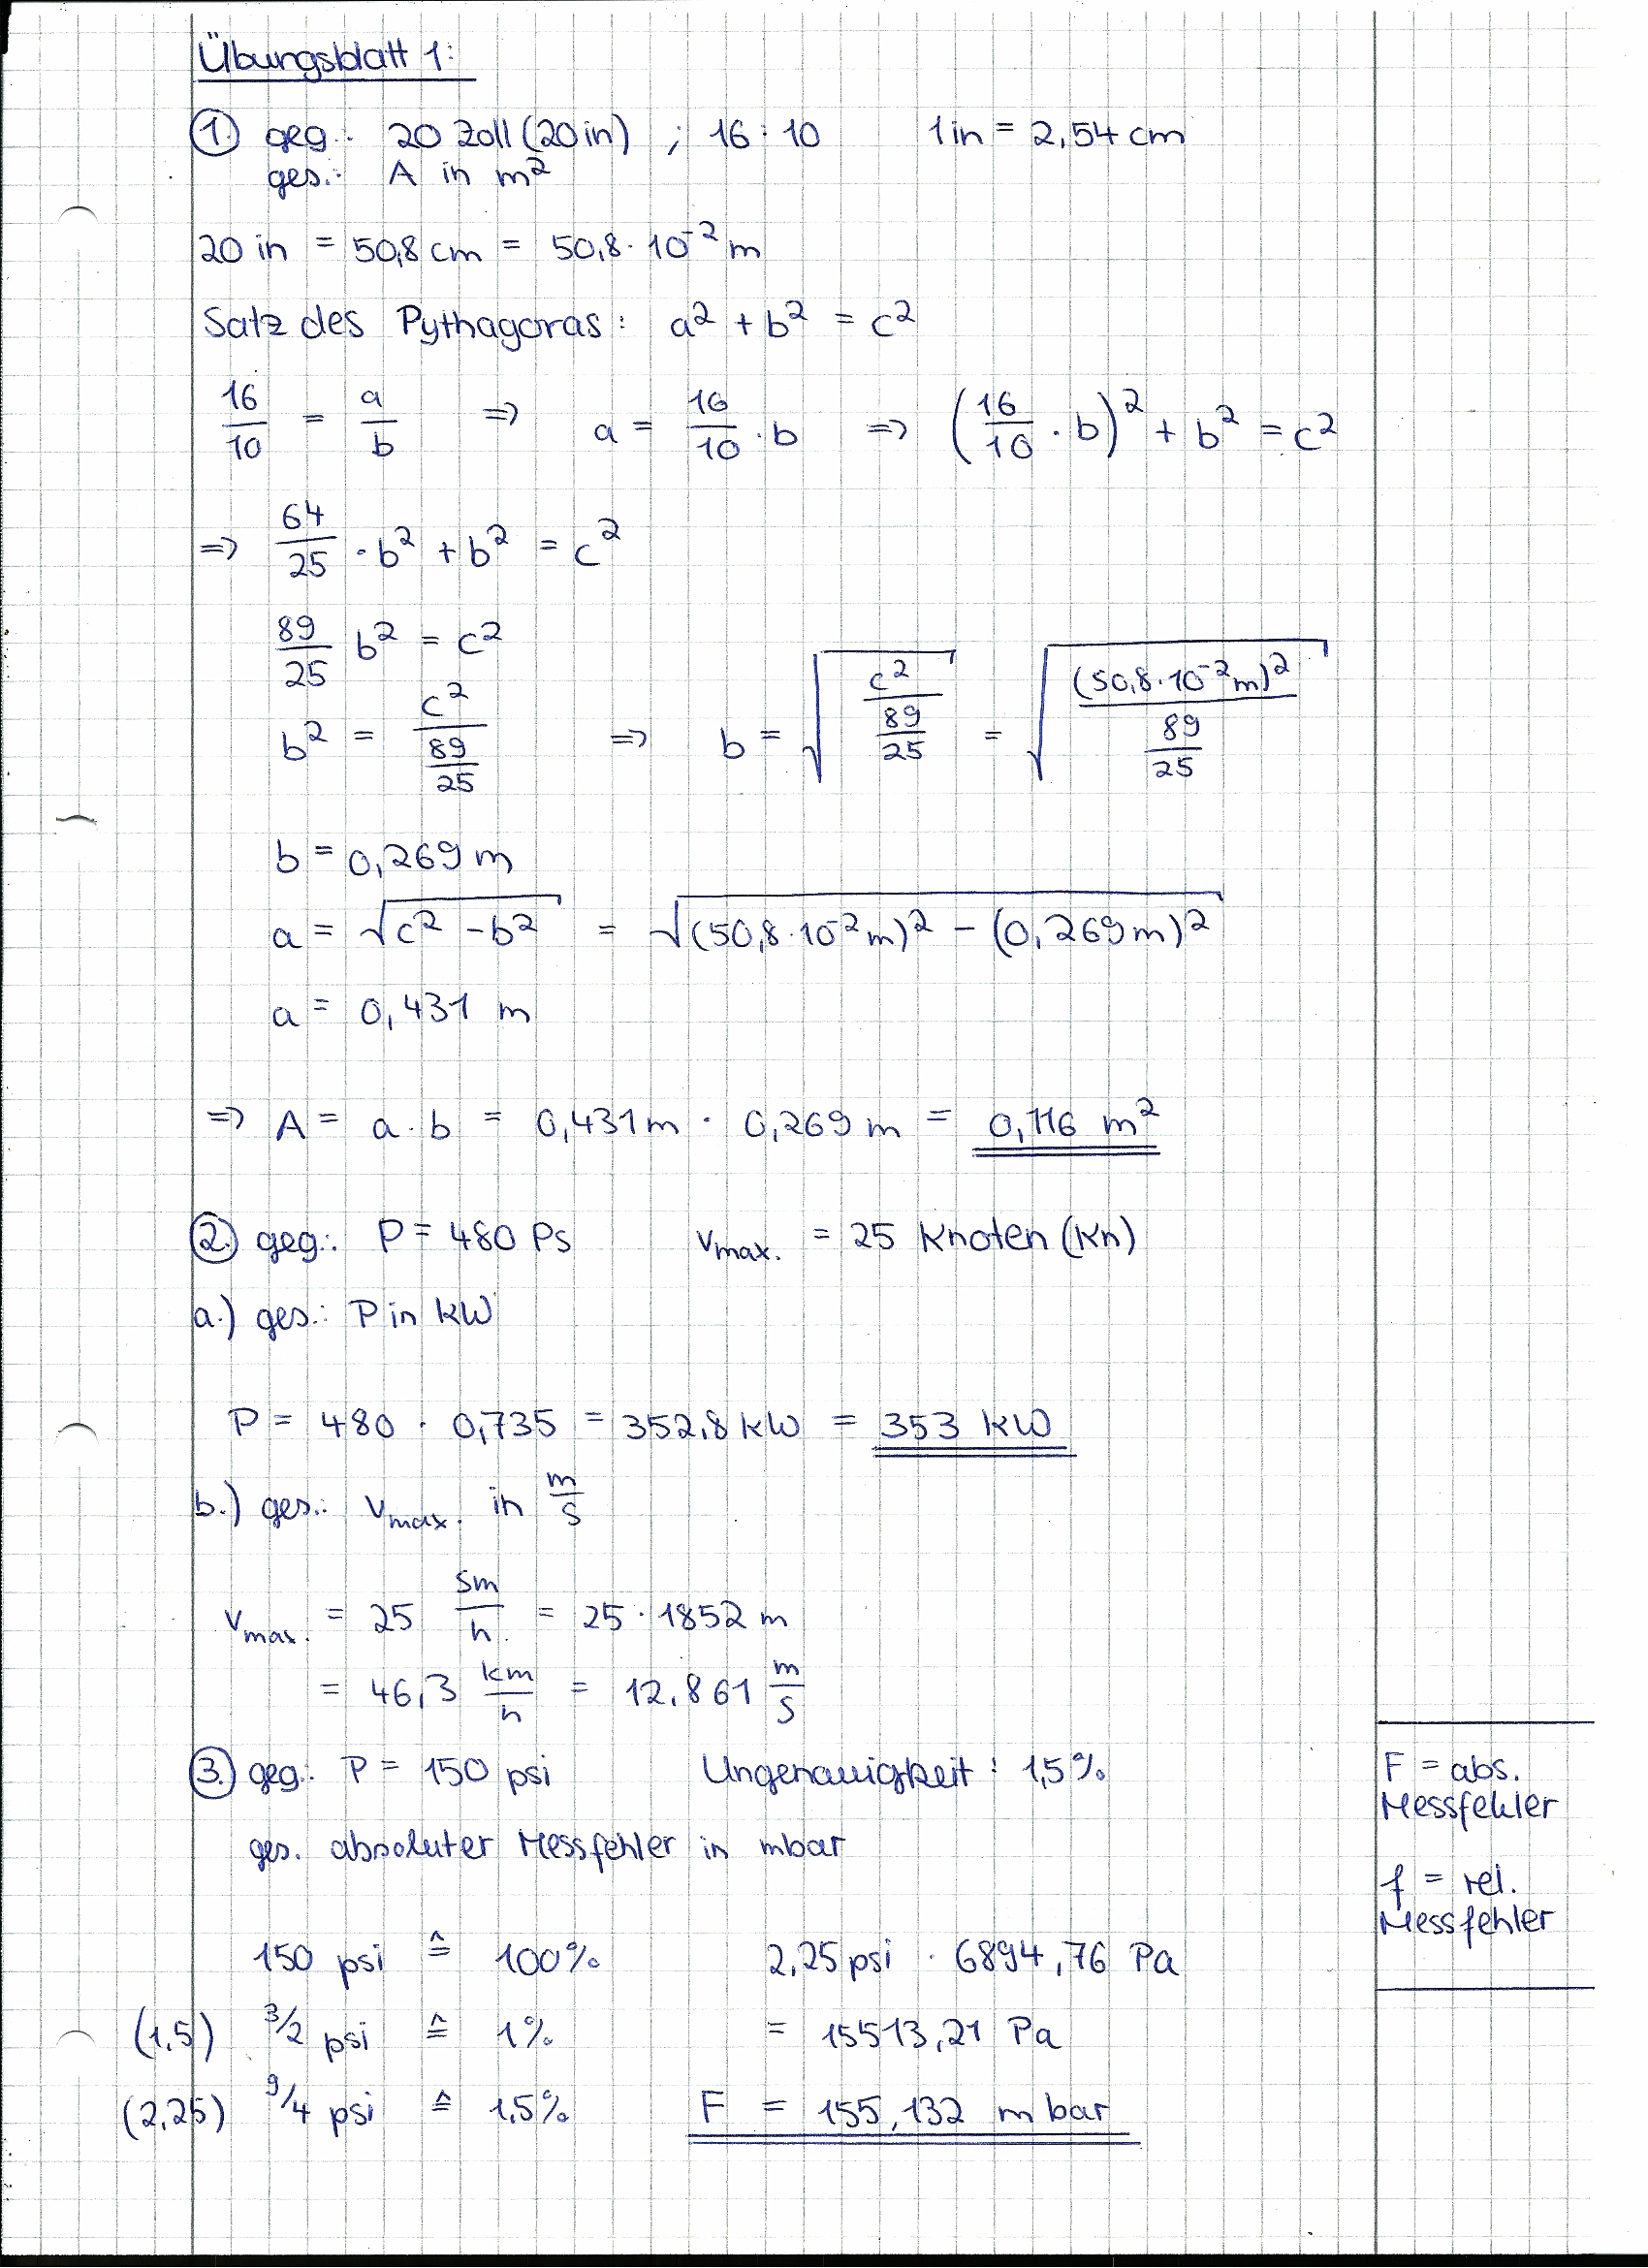 Übungsblatt 1:
① geg.: 20 Zoll (20 in) ; 16 : 10 1 in = 2,54 cm
ges.: A in m²
20 in = 50,8 cm = 50,8 · 10⁻² m
Satz des Pythagoras: a² + b² = c²
16/10 = a/b => a = 16/10 · b => (16/10 · b)² + b² = c²
=> 64/25 · b² + b² = c²
89/25 b² = c²
b² = c²/(89/25) => b = √(c²/(89/25)) = √((50,8·10⁻² m)²/(89/25))
b = 0,269 m
a = √(c² - b²) = √((50,8·10⁻² m)² - (0,269 m)²)
a = 0,431 m
=> A = a · b = 0,431 m · 0,269 m = 0,116 m²
②. geg.: P = 480 Ps v max. = 25 Knoten (Kn)
a.) ges.: P in kW
P = 480 · 0,735 = 352,8 kW = 353 kW
b.) ges.: v max. in m/s
v max. = 25 sm/h = 25 · 1852 m
= 46,3 km/h = 12,861 m/s
③. geg.: P = 150 psi Ungenauigkeit: 1,5%
ges. absoluter Messfehler in mbar
150 psi ≙ 100% 2,25 psi · 6894,76 Pa
(1,5) 3/2 psi ≙ 1% = 15513,21 Pa
(2,25) 9/4 psi ≙ 1,5% F = 155,132 mbar
F = abs.
Messfehler
f = rel.
Messfehler